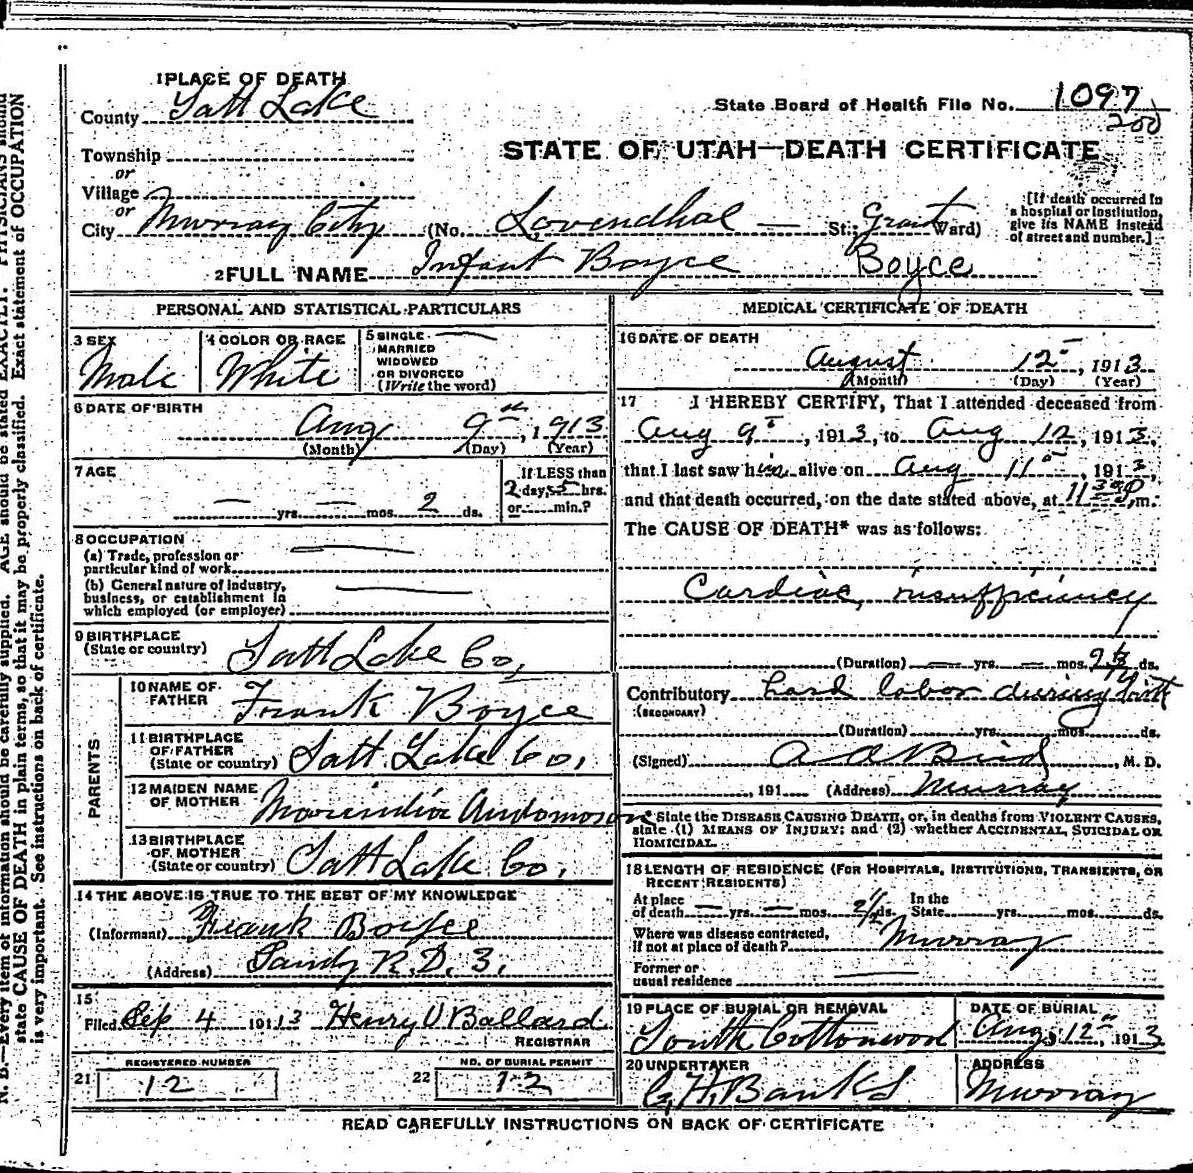 1 PLACE OF DEATH
County Salt Lake
State Board of Health File No. 1097
200
Township
or
Village
or
STATE OF UTAH—DEATH CERTIFICATE
City Murray City (No. Lovendhal — St.; Grant Ward)
[If death occurred in
a hospital or institution,
give its NAME instead
of street and number.]
2 FULL NAME Infant Boyce Boyce
PERSONAL AND STATISTICAL PARTICULARS
3 SEX
Male
4 COLOR OR RACE
White
5 SINGLE
MARRIED
WIDOWED
OR DIVORCED
(Write the word)
6 DATE OF BIRTH
Aug 9th, 1913
(Month) (Day) (Year)
7 AGE
— yrs. — mos. 2 ds.
If LESS than
2 day, hrs.
or min.?
8 OCCUPATION
(a) Trade, profession or
particular kind of work
(b) General nature of industry,
business, or establishment in
which employed (or employer)
9 BIRTHPLACE
(State or country) Salt Lake Co.
PARENTS
10 NAME OF
FATHER Frank Boyce
11 BIRTHPLACE
OF FATHER
(State or country) Salt Lake Co.
12 MAIDEN NAME
OF MOTHER
13 BIRTHPLACE
OF MOTHER
(State or country) Salt Lake Co.
14 THE ABOVE IS TRUE TO THE BEST OF MY KNOWLEDGE
(Informant) Frank Boyce
(Address) Sandy R.D. 3.
15
Filed Sep 4 1913 Henry O Ballard
REGISTRAR
REGISTERED NUMBER
21 12
NO. OF BURIAL PERMIT
22 12
MEDICAL CERTIFICATE OF DEATH
16 DATE OF DEATH
August 12, 1913
(Month) (Day) (Year)
17 I HEREBY CERTIFY, That I attended deceased from
Aug 9, 1913, to Aug 12, 1913,
that I last saw him alive on Aug 11, 1913,
and that death occurred, on the date stated above, at 11 30 P.m.
The CAUSE OF DEATH* was as follows:
Cardiac insufficiency
(Duration) — yrs. — mos. 2½ ds.
Contributory hard labor during birth
(SECONDARY)
(Duration) yrs. mos. ds.
(Signed) A A Bird, M. D.
, 191 (Address) Murray
* State the DISEASE CAUSING DEATH, or, in deaths from VIOLENT CAUSES,
state (1) MEANS OF INJURY; and (2) whether ACCIDENTAL, SUICIDAL OR
HOMICIDAL.
18 LENGTH OF RESIDENCE (FOR HOSPITALS, INSTITUTIONS, TRANSIENTS, OR
RECENT RESIDENTS)
At place
of death — yrs. — mos. 2½ ds.
In the
State yrs. mos. ds.
Where was disease contracted,
if not at place of death? Murray
Former or
usual residence
19 PLACE OF BURIAL OR REMOVAL
South Cottonwood
DATE OF BURIAL
Aug. 12, 1913
20 UNDERTAKER
G. H. Banks
ADDRESS
Murray
READ CAREFULLY INSTRUCTIONS ON BACK OF CERTIFICATE
N. B.—Every item of information should be carefully supplied. AGE should be stated EXACTLY. PHYSICIANS should
state CAUSE OF DEATH in plain terms, so that it may be properly classified. Exact statement of OCCUPATION
is very important. See instructions on back of certificate.